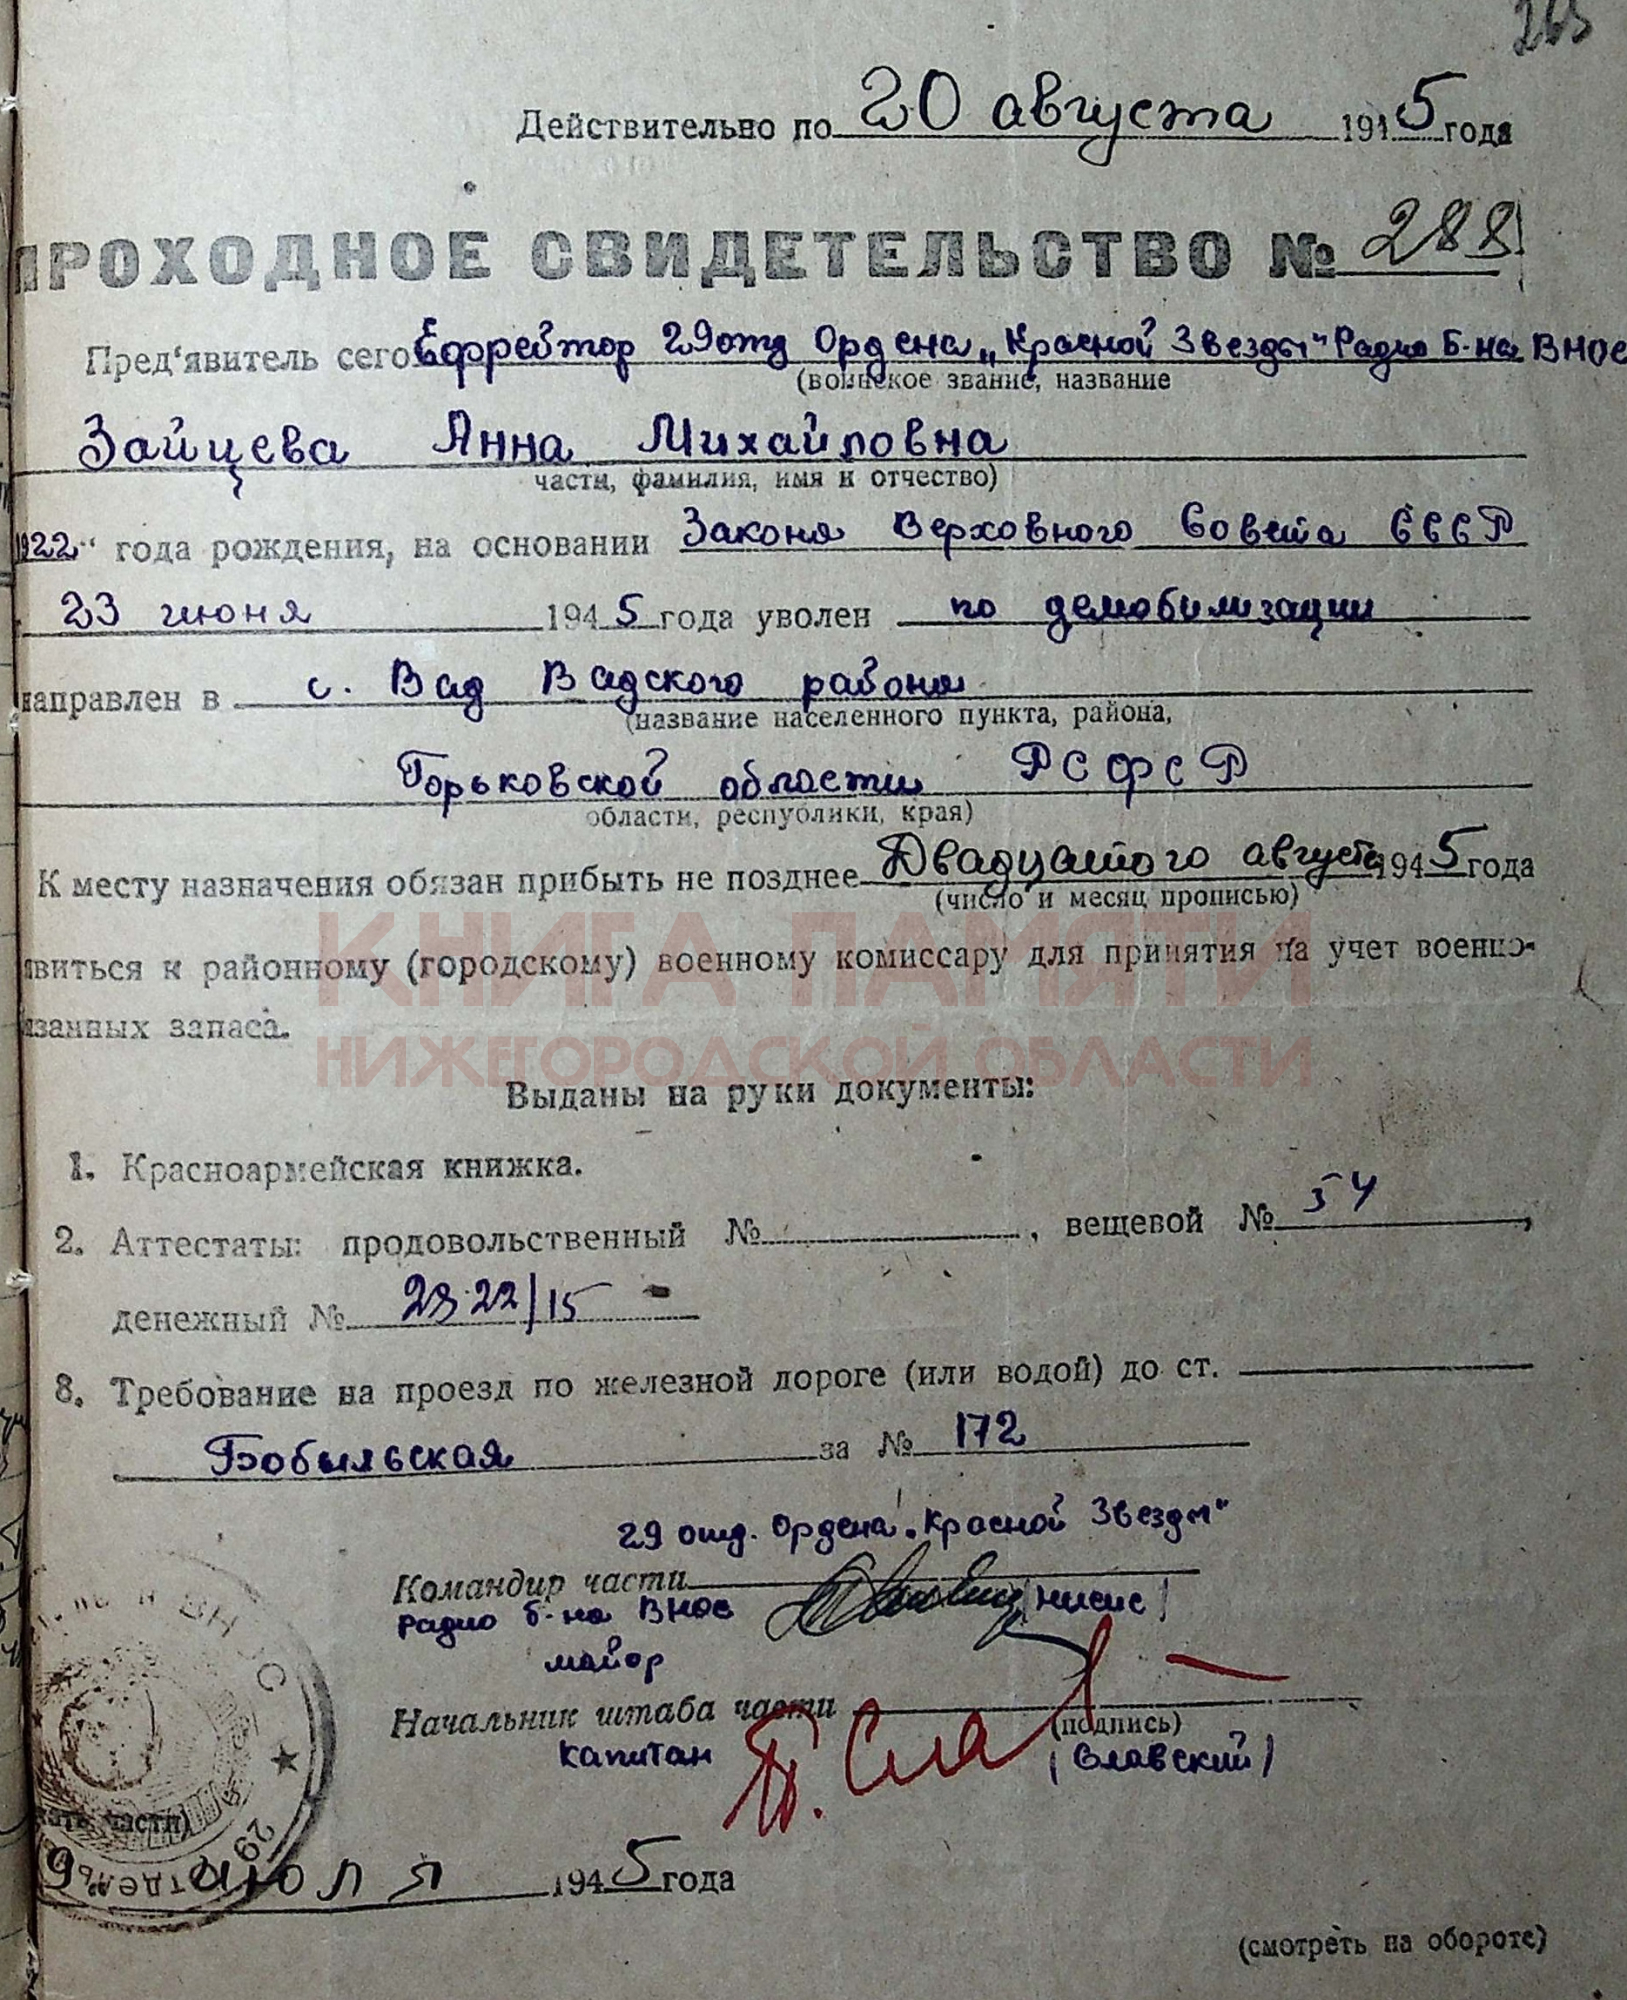 265
Действительно по 20 августа 1945 года
ПРОХОДНОЕ СВИДЕТЕЛЬСТВО № 288
Пред'явитель сего Ефрейтор 29 отд Ордена „Красной Звезды" Радио Б-на ВНОС
(воинское звание, название
Зайцева Анна Михайловна
части, фамилия, имя и отчество)
1922" года рождения, на основании Закона Верховного Совета СССР
23 июня 1945 года уволен по демобилизации
направлен в с. Вад Вадского района
(название населенного пункта, района,
Горьковской области РСФСР
области, республики, края)
К месту назначения обязан прибыть не позднее Двадцатого августа 1945 года
(число и месяц прописью)
явиться к районному (городскому) военному комиссару для принятия на учет военно-
язанных запаса.
КНИГА ПАМЯТИ
НИЖЕГОРОДСКОЙ ОБЛАСТИ
Выданы на руки документы:
1. Красноармейская книжка.
2. Аттестаты: продовольственный № , вещевой № 54,
денежный № /15
3. Требование на проезд по железной дороге (или водой) до ст.
Бобыльская за № 172
29 отд. Ордена „Красной Звезды"
Командир части
Радио б-на ВНОС
майор
Начальник штаба части
(подпись)
капитан (Славский)
части)
9 июля 1945 года
(смотреть на обороте)